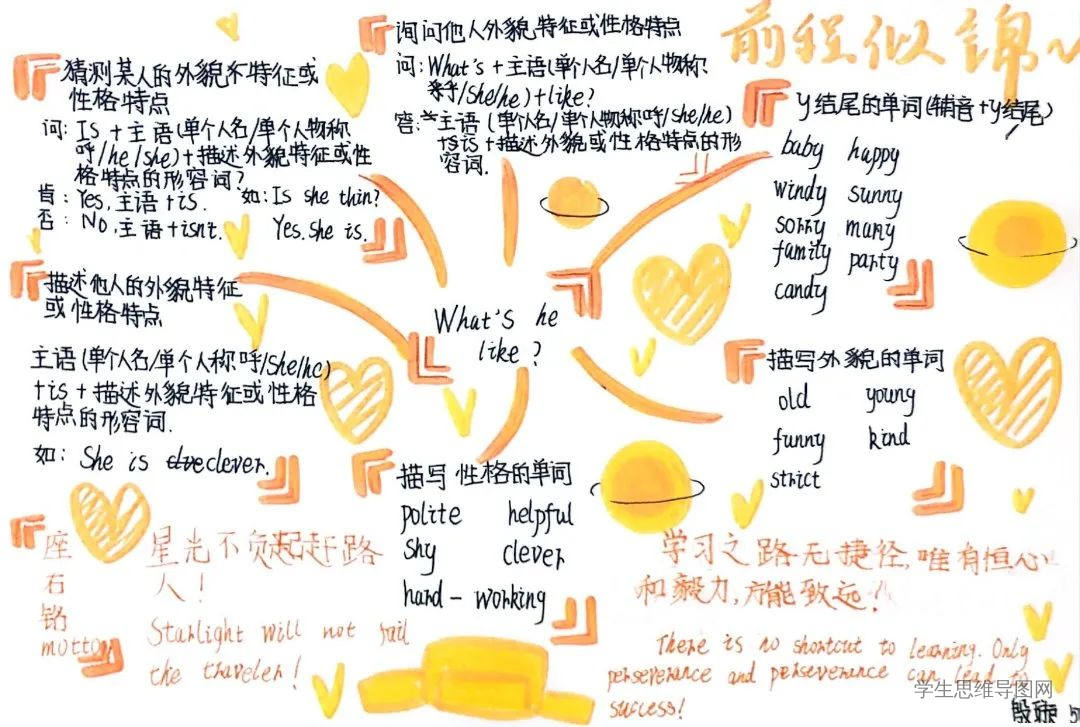 前程似錦~
猜测某人的外貌不特征或
性格特点
问: Is + 主语(单个人名/单个人物称
呼/he/she)+描述外貌特征或性
格特点的形容词?
肯: Yes, 主语+is.
否: No, 主语+isnt.
如: Is she thin?
Yes. she is.
询问他人外貌特征或性格特点
问: What's + 主语(单个人名/单个人物称
呼/She/he)+like?
答: 主语 (单个人名/单个人物称呼/she/he)
+is+描述外貌或性格特点的形
容词.
y结尾的单词(辅音+y结尾)
baby happy
windy sunny
sorry many
family party
candy
描述他人的外貌特征
或性格特点
主语(单个人名/单个人称呼/She/he)
+is+描述外貌特征或性格
特点的形容词.
如: She is clever.
What's he
like?
描写外貌的单词
old young
funny kind
strict
描写性格的单词
polite helpful
shy clever
hard-working
座右铭
motto
星光不负起赶路
人!
Starlight will not fail
the traveler!
学习之路无捷径,唯有恒心
和毅力,方能致远.
There is no shortcut to learning. Only
perseverance and perseverance can lead to
success!
学生思维导图网